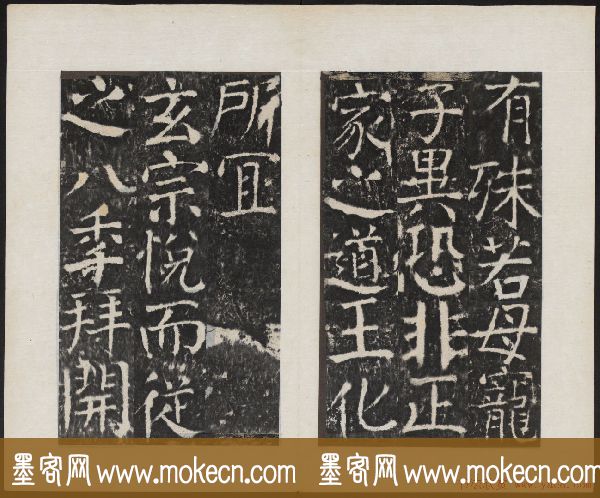 有殊若母寵
子異恐非正
家之道王化
所宜
玄宗悅而從
之八年拜開
墨客网 www.mokecn.com 墨客网 www.mokecn.com